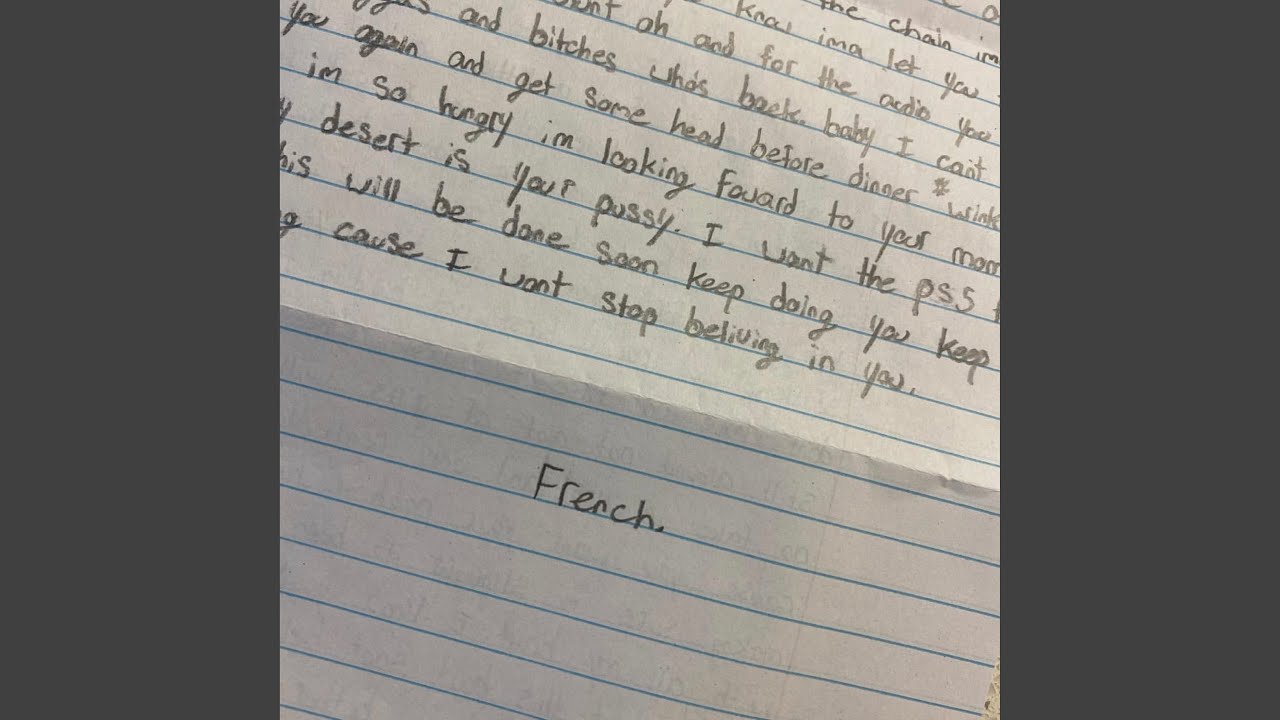 the chain im
unt oh and for the audio you
and bitches who's back. baby I can't
you again and get some head before dinner * wink
im so hungry im looking foward to your mom
desert is your pussy. I want the ps5
his will be done soon keep doing you keep
cause I wont stop beliving in you.
French.